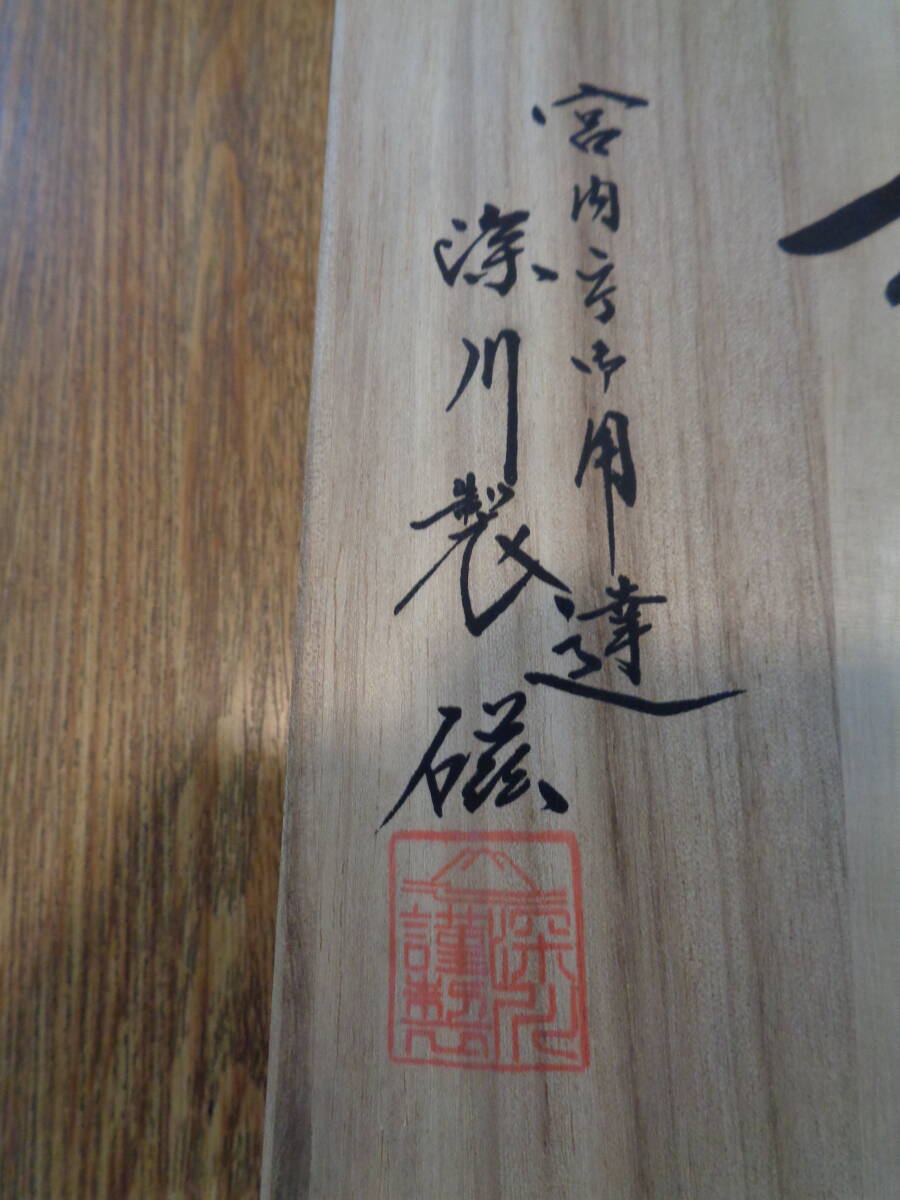 宮内庁御用達
深川製磁
深川
謹製